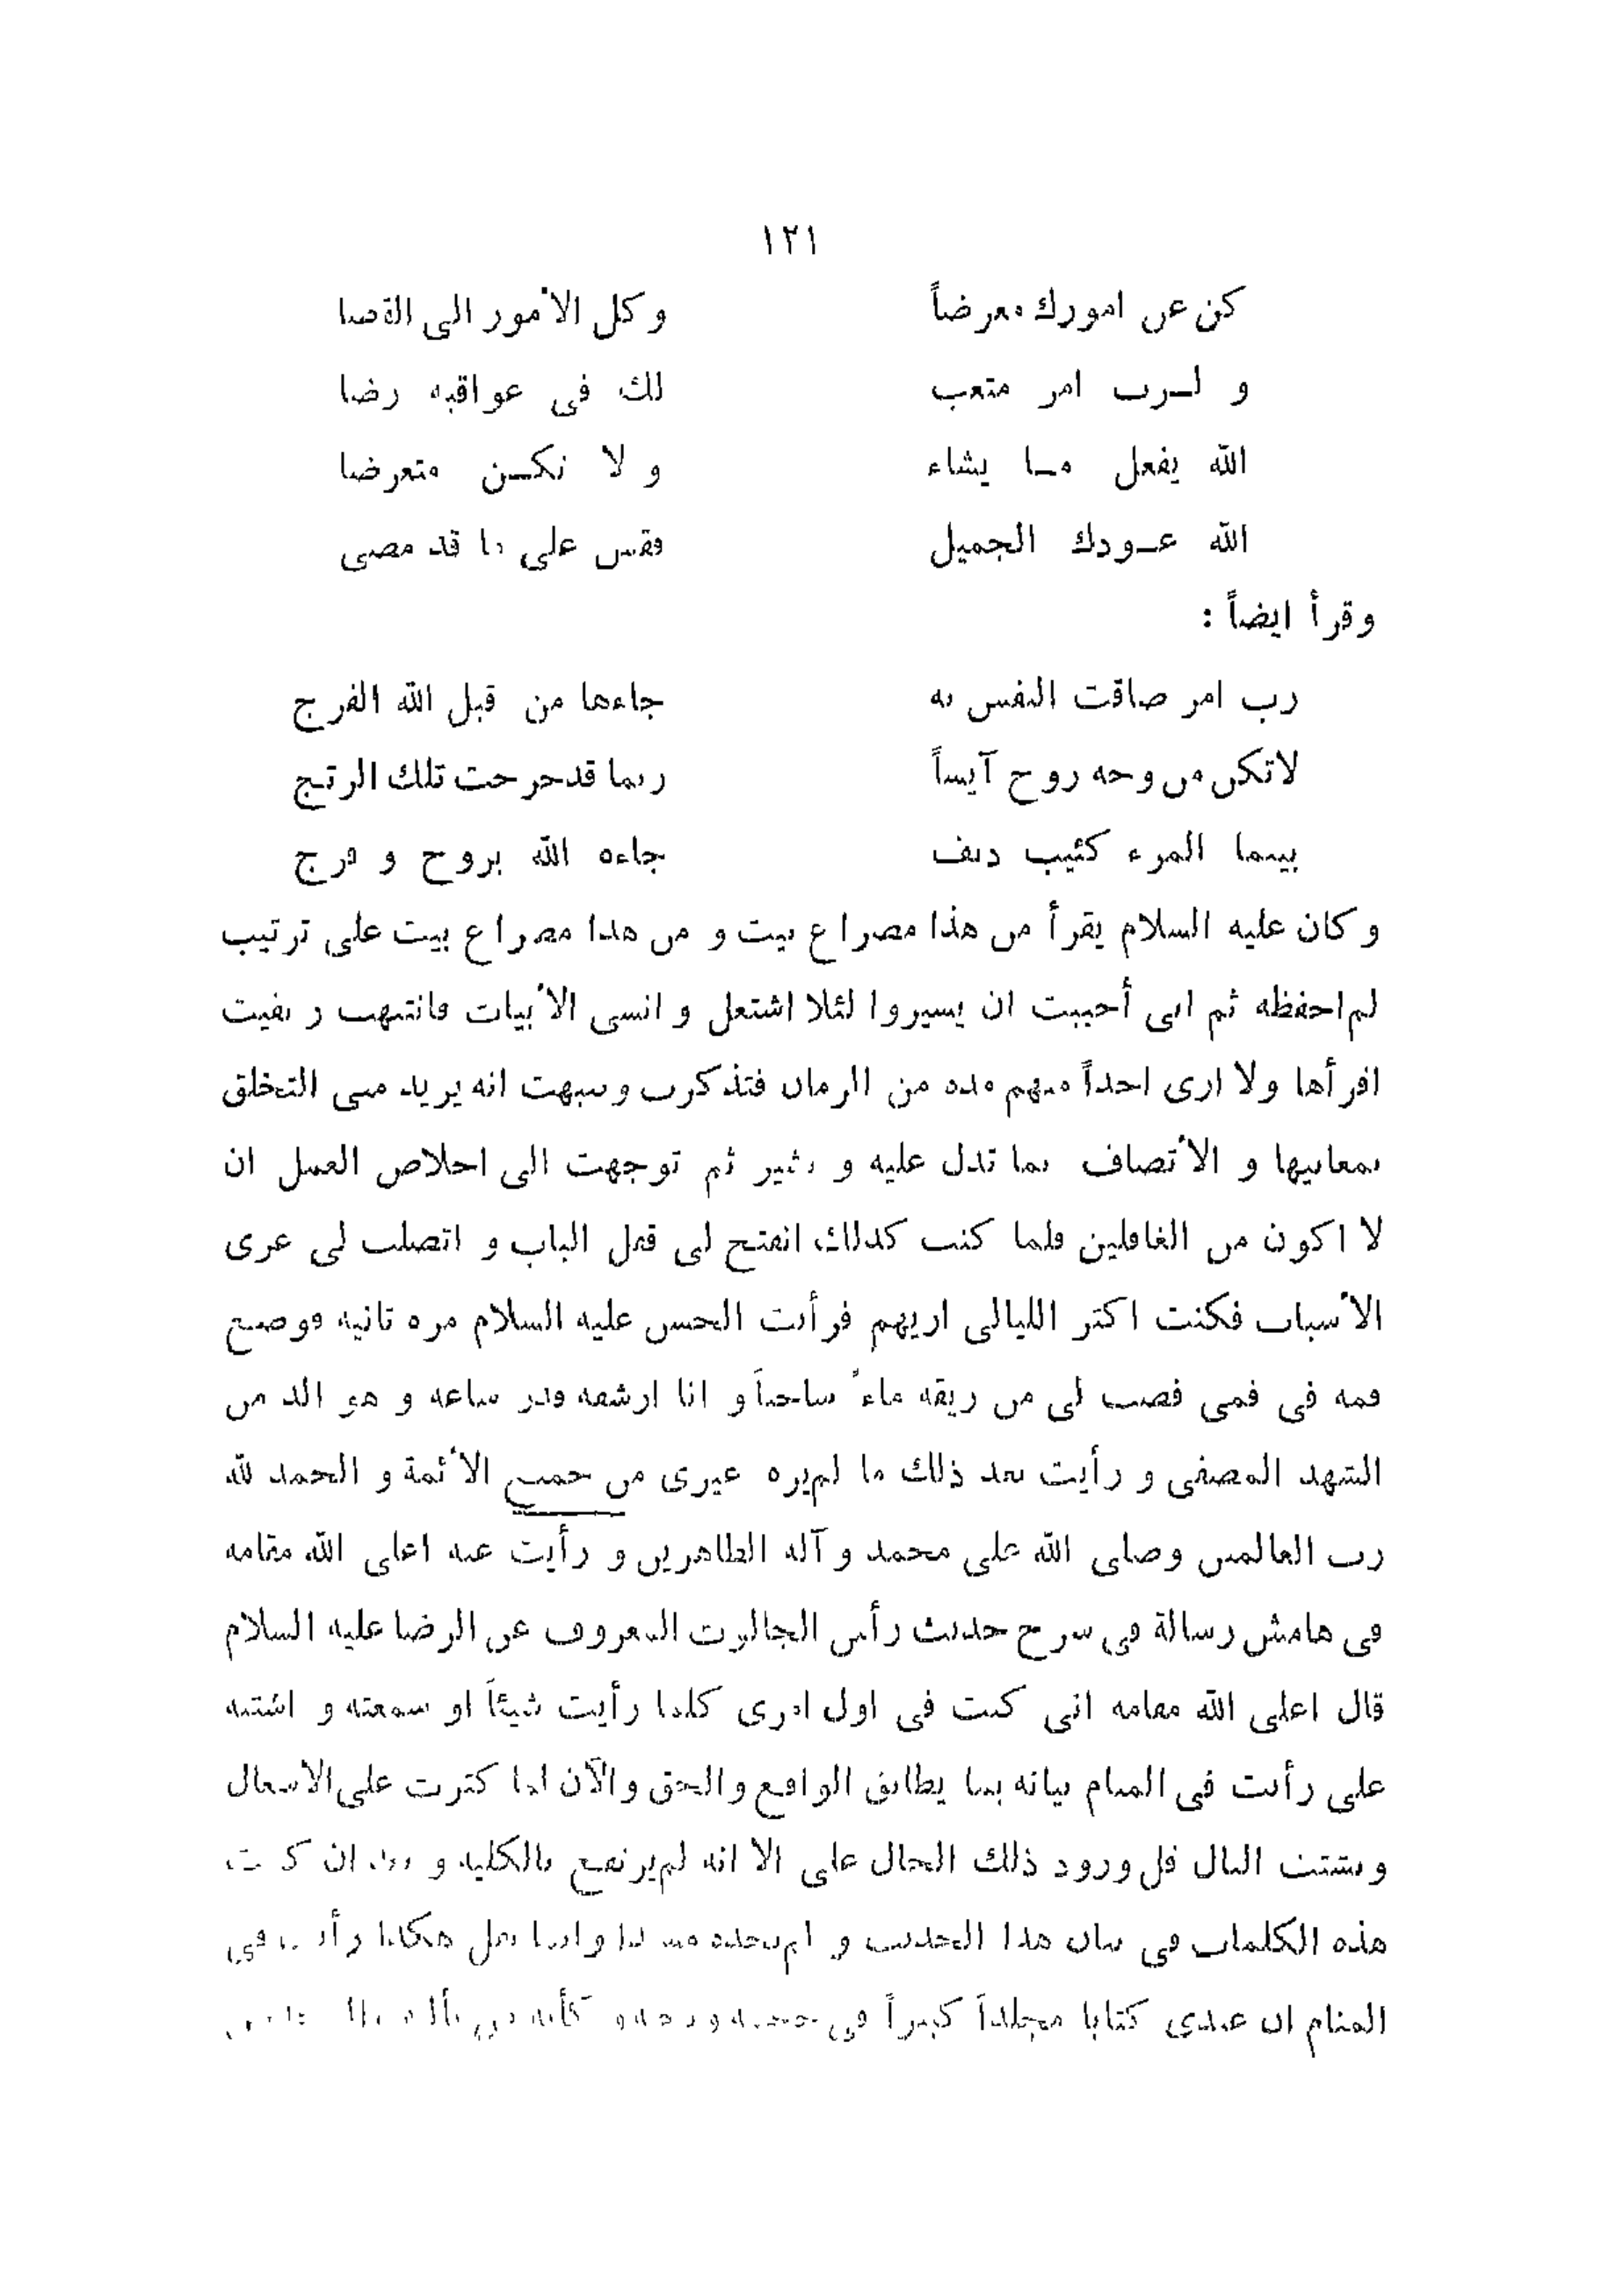 ١٢١
كن عن امورك معرضاً وكل الأمور الى القضا
و لـرب امر متعب لك فى عواقبه رضا
الله يفعل مـا يشاء و لا تكـن متعرضا
الله عـودك الجميل فقس على ما قد مضى
وقرأ ايضاً :
رب امر ضاقت النفس به جاءها من قبل الله الفرج
لاتكن من وجه روح آيساً ربما قدفرجت تلك الرتج
بينما المرء كئيب دنف جاءه الله بروح و فرج
و كان عليه السلام يقرأ من هذا مصراع بيت و من هذا مصراع بيت على ترتيب
لم احفظه ثم انى أحببت ان يسيروا لئلا اشتغل و انسى الأبيات فانتبهت و بقيت
اقرأها ولا ارى احداً منهم مدة من الزمان فتذكرت ونبهت انه يريد منى التخلق
بمعانيها و الأتصاف بما تدل عليه و تشير ثم توجهت الى اخلاص العمل ان
لا اكون من الغافلين فلما كنت كذلك انفتح لى قفل الباب و اتصلت لى عرى
الأسباب فكنت اكثر الليالى اريهم فرأيت الحسن عليه السلام مرة ثانية فوضع
فمه فى فمى فصب لى من ريقه ماء و انا ارشفه قدر ساعة و هو الذ من
الشهد المصفى و رأيت بعد ذلك ما لم يره غيرى من جميع الأئمة و الحمد لله
رب العالمين وصلى الله على محمد و آله الطاهرين و رأيت عنه اعلى الله مقامه
فى هامش رسالة فى شرح حديث رأس الجالوت المعروف عن الرضا عليه السلام
قال اعلى الله مقامه انى كنت فى اول امرى كلما رأيت شيئاً او سمعته و اشتبه
على رأيت فى المنام بيانه بما يطابق الواقع والحق والآن لما كثرت على الاشغال
وتشتت البال قل ورود ذلك الحال على الا انه لم يرتفع بالكلية و ان كتبت
هذه الكلمات فى بيان هذا الحديث و هكذا رأيت فى
المنام ان عندى كتابا مجلداً كبيراً فى كأنه